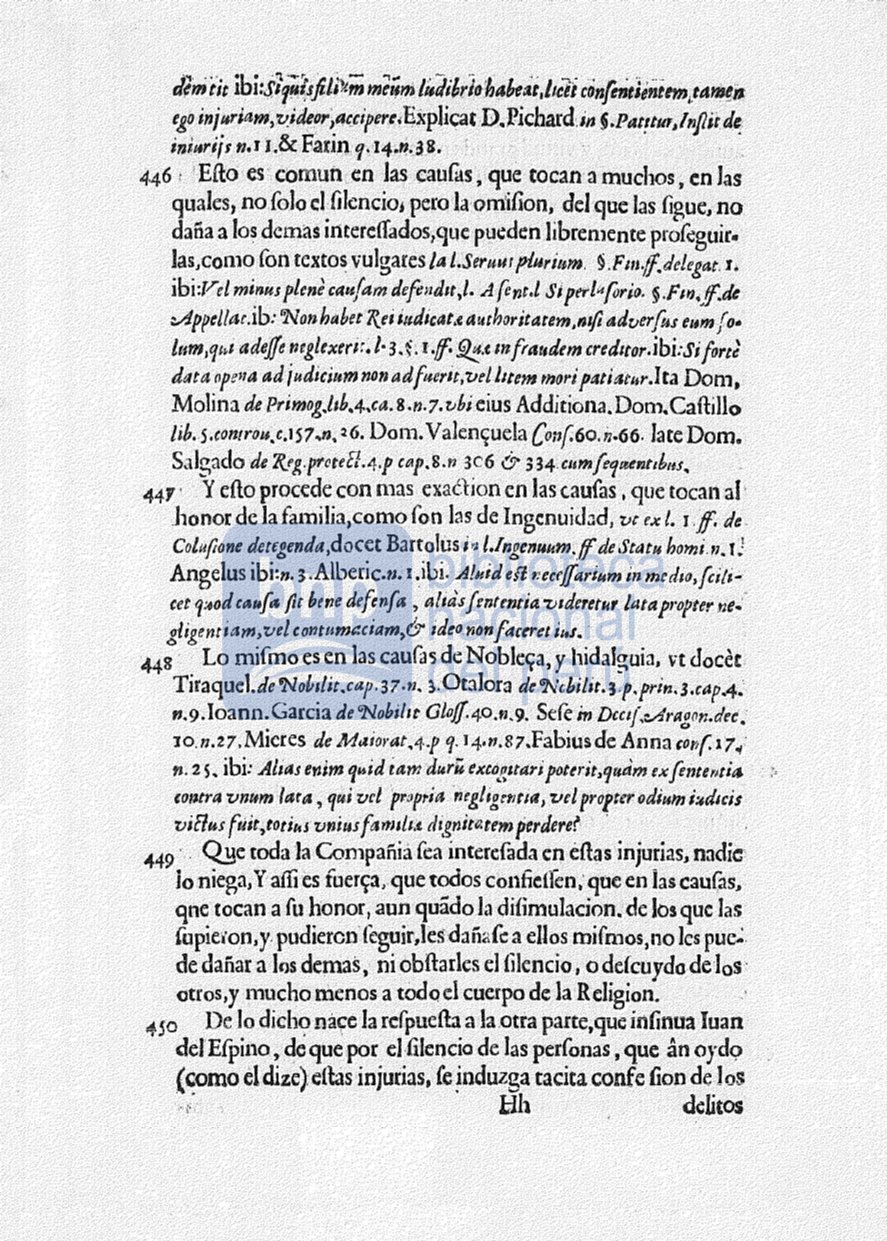 dēm tit ibi: Si quis filiũm meũm ludibrio habeat, licèt consentientem, tamen
ego injuriam, videor, accipere. Explicat D. Pichard in §. Patitur, Instit de
iniurijs n. 11. & Farin q. 14. n. 38.
446 Esto es comun en las causas, que tocan a muchos, en las
quales, no solo el silencio, pero la omision, del que las sigue, no
daña a los demas interessados, que pueden libremente proseguir-
las, como son textos vulgares la l. Seruus plurium. §. Fin. ff. delegat. 1.
ibi: Vel minus plenè causam defendit, l. A sent. l Si perlusorio. §. Fin. ff. de
Appellat. ib: Non habet Rei iudicatæ authoritatem, nisi adversus eum so-
lum, qui adesse neglexerit. l. 3. §. 1. ff. Quæ in fraudem creditor. ibi: Si fortè
data opera ad judicium non adfuerit, vel litem mori patiatur. Ita Dom,
Molina de Primog. lib. 4. ca. 8. n. 7. vbi eius Additiona. Dom. Castillo
lib. 5. controu. c. 157. n. 26. Dom. Valençuela Cons. 60. n. 66. late Dom.
Salgado de Reg. protect. 4. p cap. 8. n 306 & 334 cum sequentibus.
447 Y esto procede con mas exaction en las causas, que tocan al
honor de la familia, como son las de Ingenuidad, vt ex l. 1 ff. de
Colusione detegenda, docet Bartolus in l. Ingenuum. ff de Statu homi. n. 1.
Angelus ibi: n. 3. Alberic. n. 1. ibi. Aluid est necessarium in medio, scili-
cet quod causa sit bene defensa, aliàs sententia videretur lata propter ne-
gligentiam, vel contumaciam, & ideo non faceret ius.
448 Lo mismo es en las causas de Nobleça, y hidalguia, vt docèt
Tiraquel. de Nobilit. cap. 37. n. 3. Otalora de Nobilit. 3. p. prin. 3. cap. 4.
n. 9. Ioann. Garcia de Nobilit Gloss. 40. n. 9. Sese in Decis. Aragon. dec.
10. n. 27. Mieres de Maiorat. 4. p q. 14. n. 87. Fabius de Anna cons. 17.
n. 25. ibi: Alias enim quid tam durũ excogitari poterit, quàm ex sententia
contra vnum lata, qui vel propria negligentia, vel propter odium iudicis
victus fuit, totius vnius familiæ dignitatem perdere?
449 Que toda la Compañia sea interesada en estas injurias, nadie
lo niega, Y assi es fuerça, que todos confiessen, que en las causas,
qne tocan a su honor, aun quãdo la disimulacion. de los que las
supieron, y pudieron seguir, les dañase a ellos mismos, no les pue-
de dañar a los demas, ni obstarles el silencio, o descuydo de los
otros, y mucho menos a todo el cuerpo de la Religion.
450 De lo dicho nace la respuesta a la otra parte, que insinua Iuan
del Espino, de que por el silencio de las personas, que ân oydo
(como el dize) estas injurias, se induzga tacita confe sion de los
Hh delitos
bnp biblioteca
nacional
del perú